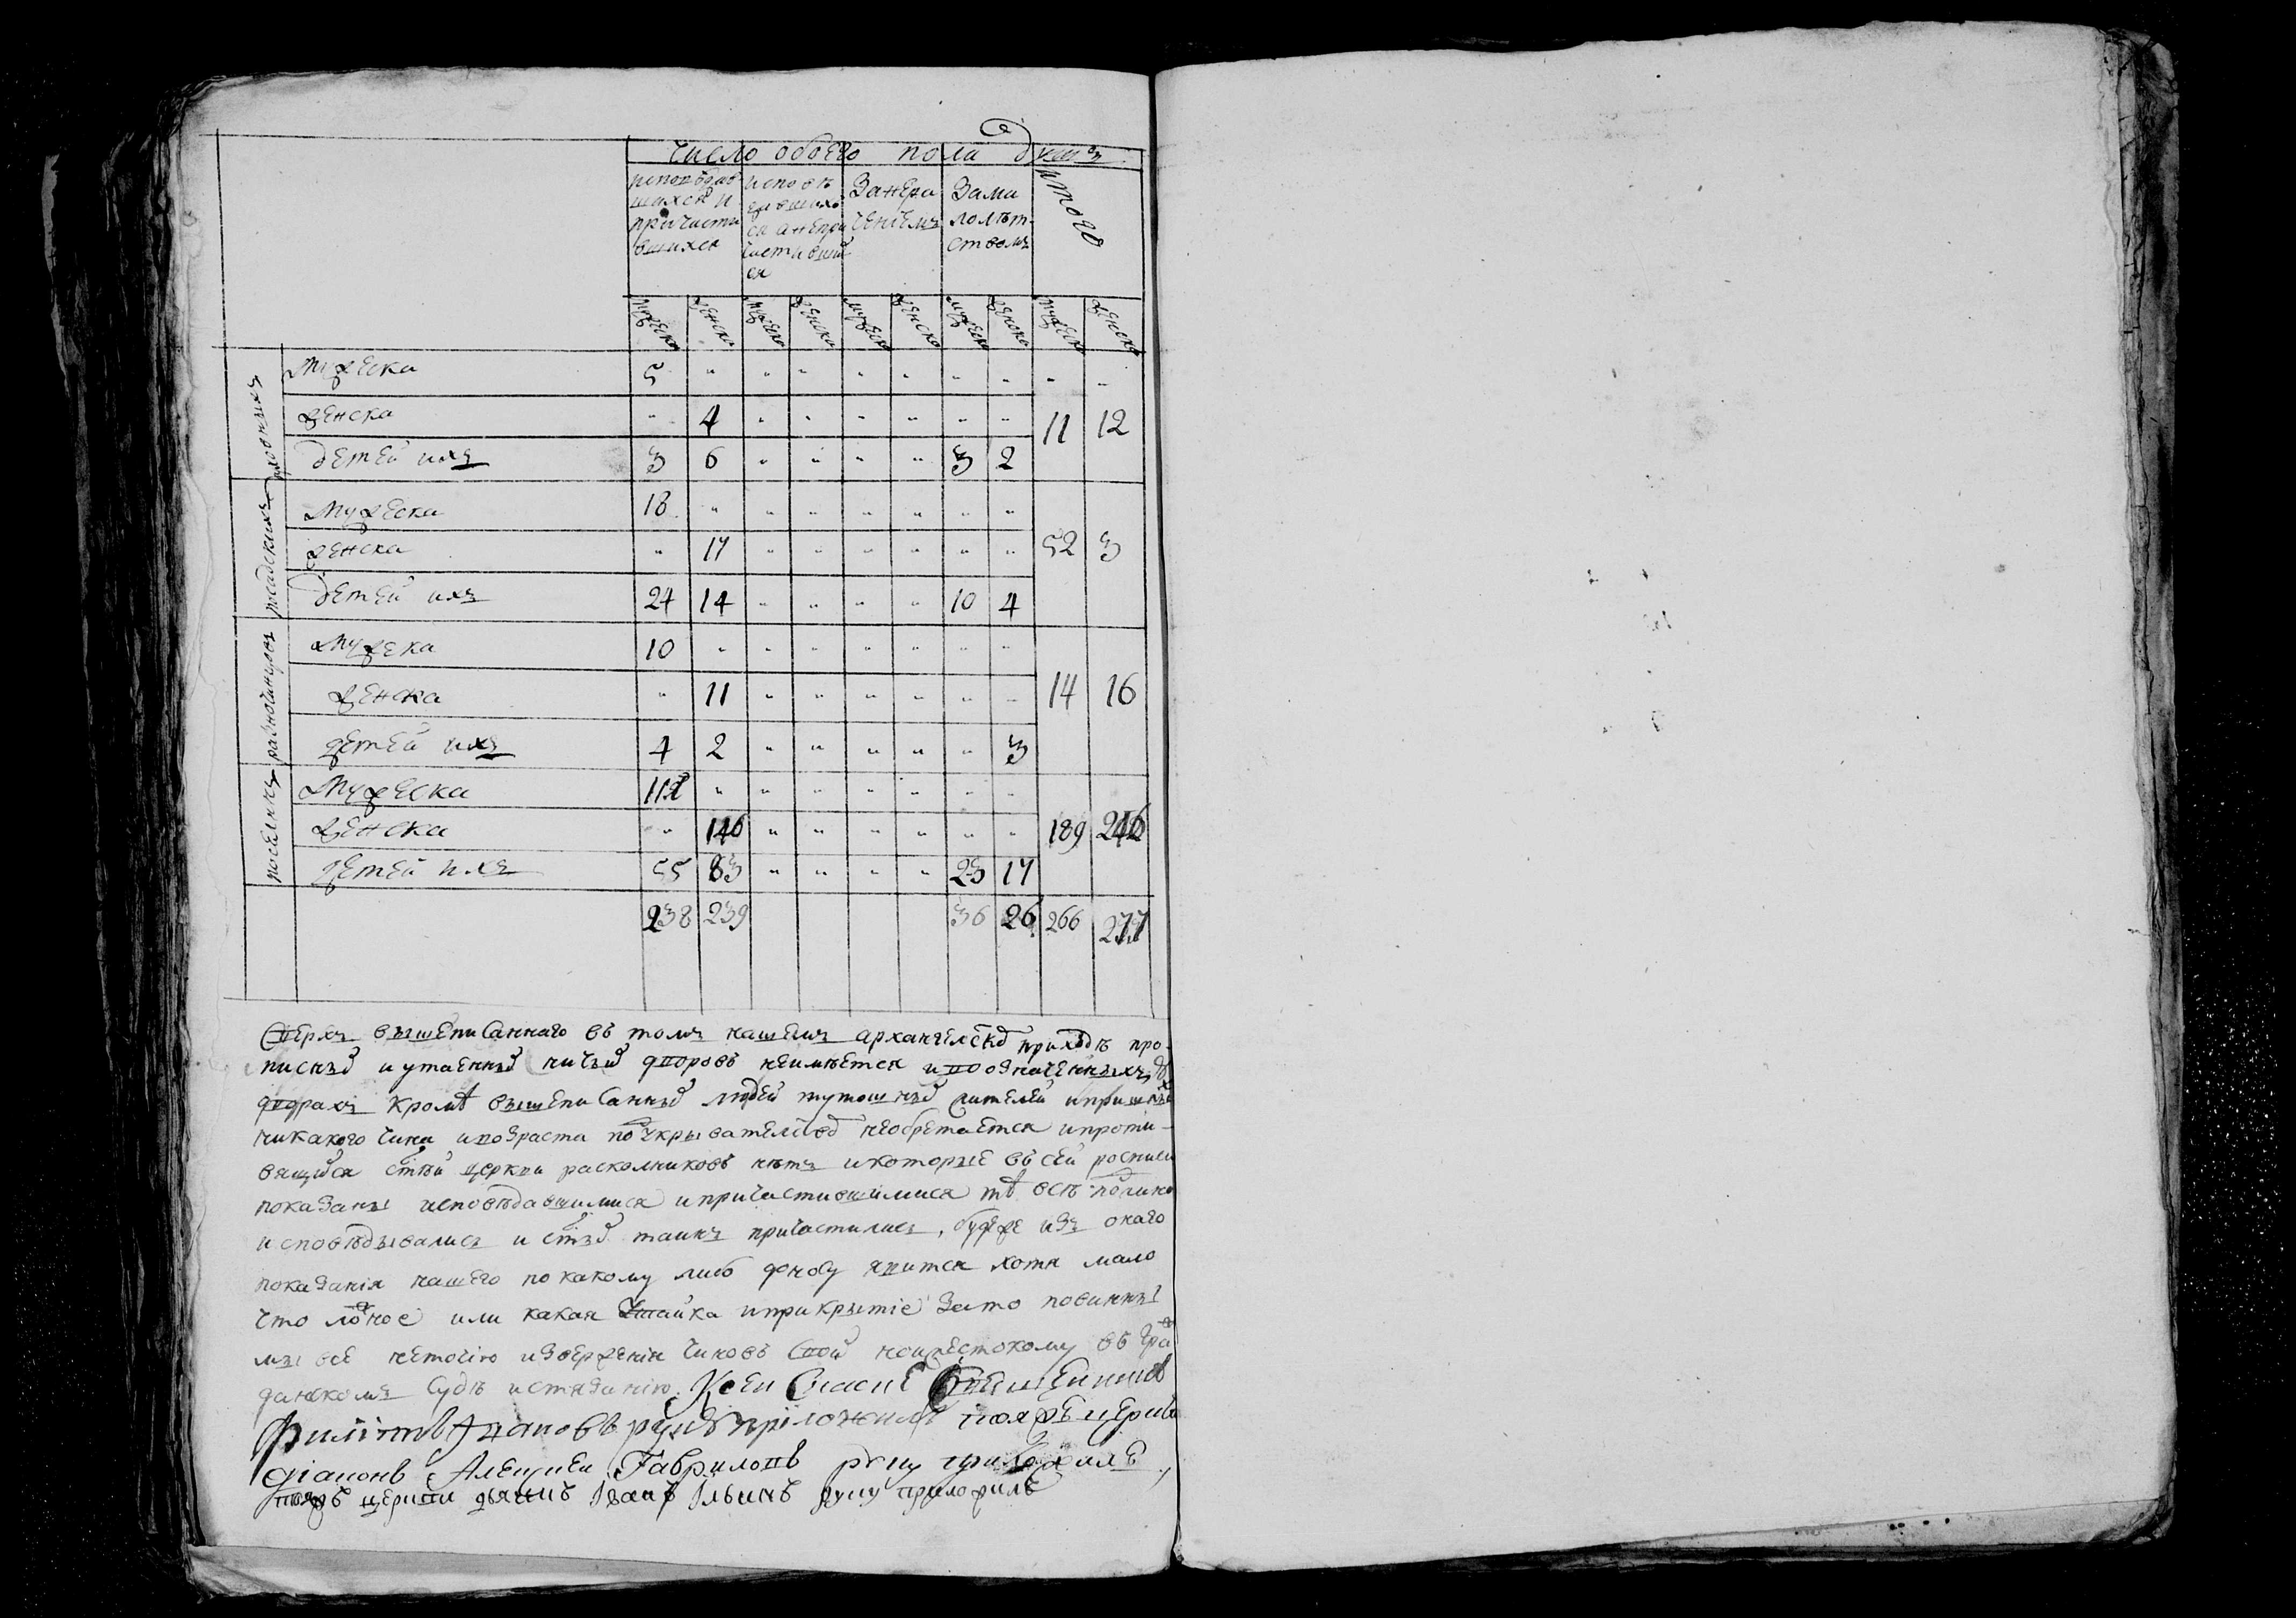 число обоего пола душъ
исповедав исповѣ Занера Зама итого
шихся и
причасти ся анепри чениемъ лолѣт
вшихся частивших ством
ся
мужеска женска мужеска женска мужеска женска мужеска женска мужеска женска
духовныхъ
мужеска 5 " " " " " " " " "
женска " 4 " " " " " " 11 12
детей ихъ 3 6 " " " " 3 2
посадскихъ
мужеска 18 " " " " " " "
женска " 17 " " " " " " 52 3
детей ихъ 24 14 " " " " 10 4
разночинцовъ
мужеска 10 " " " " " " "
женска " 11 " " " " " " 14 16
детей ихъ 4 2 " " " " " 3
мужеска " " " " " " "
женска " 146 " " " " " " 189 246
детей ихъ 55 83 " " " " 23 17
238 239 36 26 266 277
Сверхъ вышеписаннаго въ томъ нашемъ архангелском приходѣ про-
писных и утаенных ничьих дворовъ неимѣется и во означенныхъ
дворахъ кромѣ вышеписанных людей тутошных жителей и пришлых
никакого чина и возраста по укрывателству необретается и проти-
вящихся стѣй церкви расколниковъ нѣтъ и которые въ сей росписи
показаны исповѣдавшимися и причастившимися тѣ всѣ подлинно
исповѣдывались и стых таинъ причастились, буде же изъ онаго
показания нашего по какому либо доносу явится хотя мало
что ложное или какая утайка и прикрытие за то повинны
мы все неточию извержения чиновъ своих но и жестокому въ граж
данскомъ судѣ истязанию. Къ сей росписе Священникъ
руку приложилъ тояже церкви
диаконъ Алексей Гавриловъ руку приложилъ
тояжъ церкви дьячекъ Иванъ Ильинъ руку приложилъ